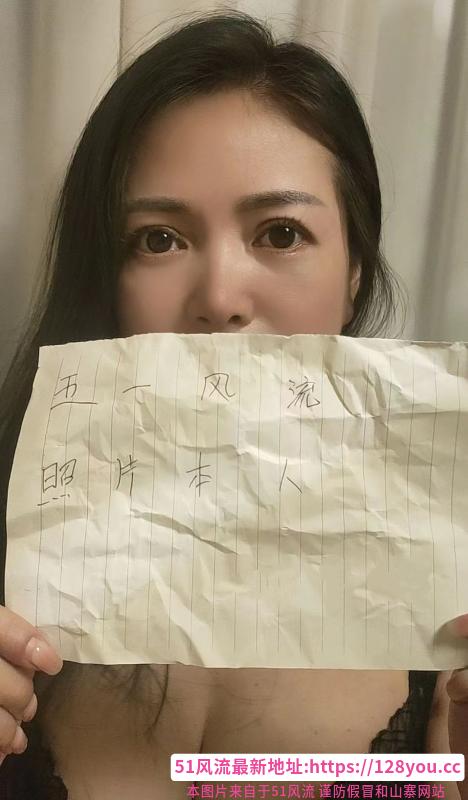 五一风流
照片本人
51风流最新地址:https://128you.cc
本图片来自于51风流 谨防假冒和山寨网站